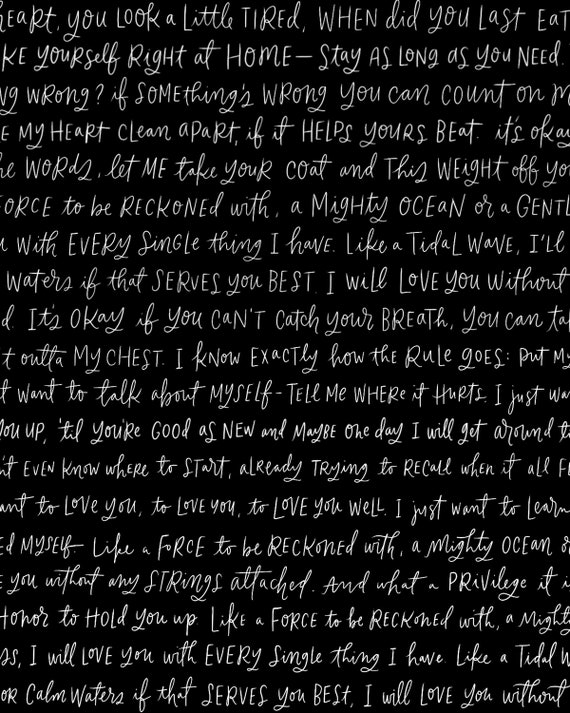 heart, you look a little tired, when did you last eat
ke yourself right at home— stay as long as you need.
ng wrong? if something's wrong you can count on m
e my heart clean apart, if it helps yours beat. it's okay
he words, let me take your coat and this weight off yo
force to be reckoned with, a mighty ocean or a gentl
u with every single thing I have. Like a tidal wave, I'll
waters if that serves you best. I will love you without
d. It's okay if you can't catch your breath, you can ta
t outta my chest. I know exactly how the rule goes: put my
t want to talk about myself- tell me where it hurts. I just wa
you up, 'til you're good as new and maybe one day I will get around to
n't even know where to start, already trying to recall when it all f
ant to love you, to love you, to love you well. I just want to learn
ed myself— Like a force to be reckoned with, a mighty ocean o
e you without any strings attached. And what a privilege it i
honor to hold you up. Like a force to be reckoned with, a mighty
ss, I will love you with every single thing I have. Like a tidal w
or calm waters if that serves you best, I will love you without